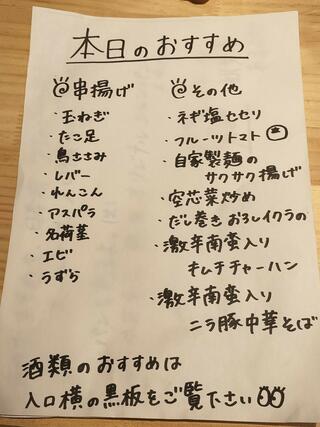 本日のおすすめ
串揚げ
・玉ねぎ
・たこ足
・鳥ささみ
・レバー
・れんこん
・アスパラ
・名荷茎
・エビ
・うずら
その他
・ネギ塩セセリ
・フルーツトマト
・自家製麺の
サクサク揚げ
・空芯菜炒め
・だし巻き おろしイクラのせ
・激辛南蛮入り
キムチチャーハン
・激辛南蛮入り
ニラ豚中華そば
酒類のおすすめは
入口横の黒板をご覧下さい